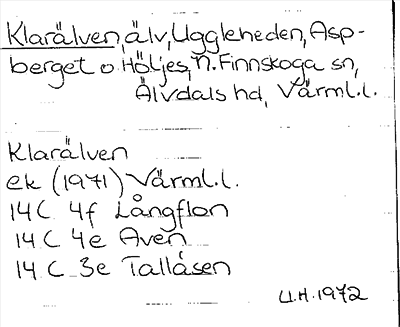 Klarälven, älv, Uggleheden, Asp-
berget o Höljes, N. Finnskoga sn,
Älvdals hd, Värml.l.
Klarälven
ek (1971) Värml.l.
14C 4f Långflon
14C 4e Aven
14C 3e Tallåsen
U.H. 1972